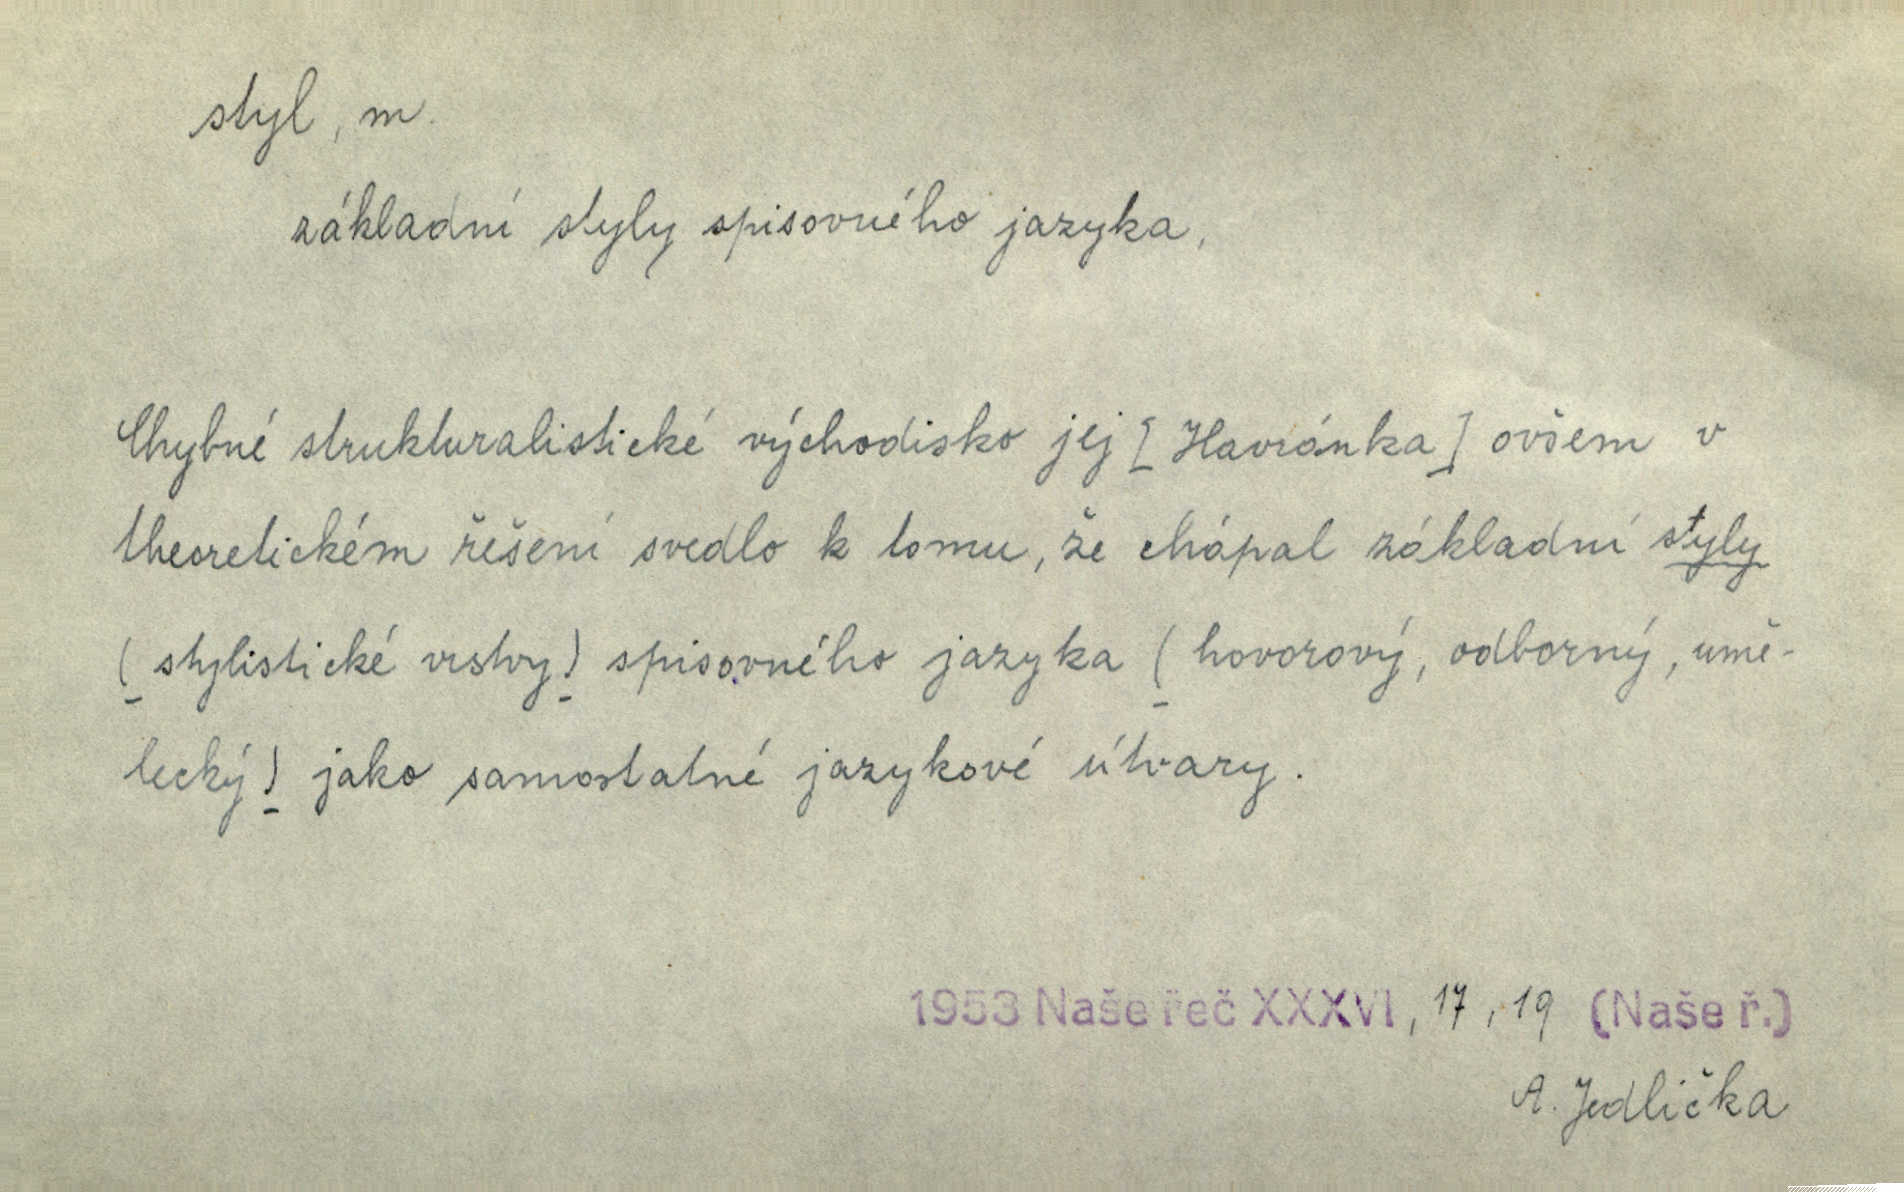 styl, m.
základní styly spisovného jazyka,
Chybné strukturalistické východisko jej [Havránka] ovšem v
theoretickém řešení svedlo k tomu, že chápal základní styly
(stylistické vrstvy) spisovného jazyka (hovorový, odborný, umě-
lecký) jako samostatné jazykové útvary.
1953 Naše řeč XXXVI, 17, 19 (Naše ř.)
A. Jedlička